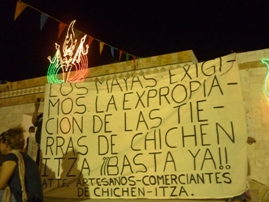 LOS MAYAS EXIGI-
MOS LA EXPROPIA-
CION DE LAS TIE-
RRAS DE CHICHEN
ITZA ¡¡BASTA YA!!
ATTE. ARTESANOS-COMERCIANTES
DE CHICHEN-ITZA.